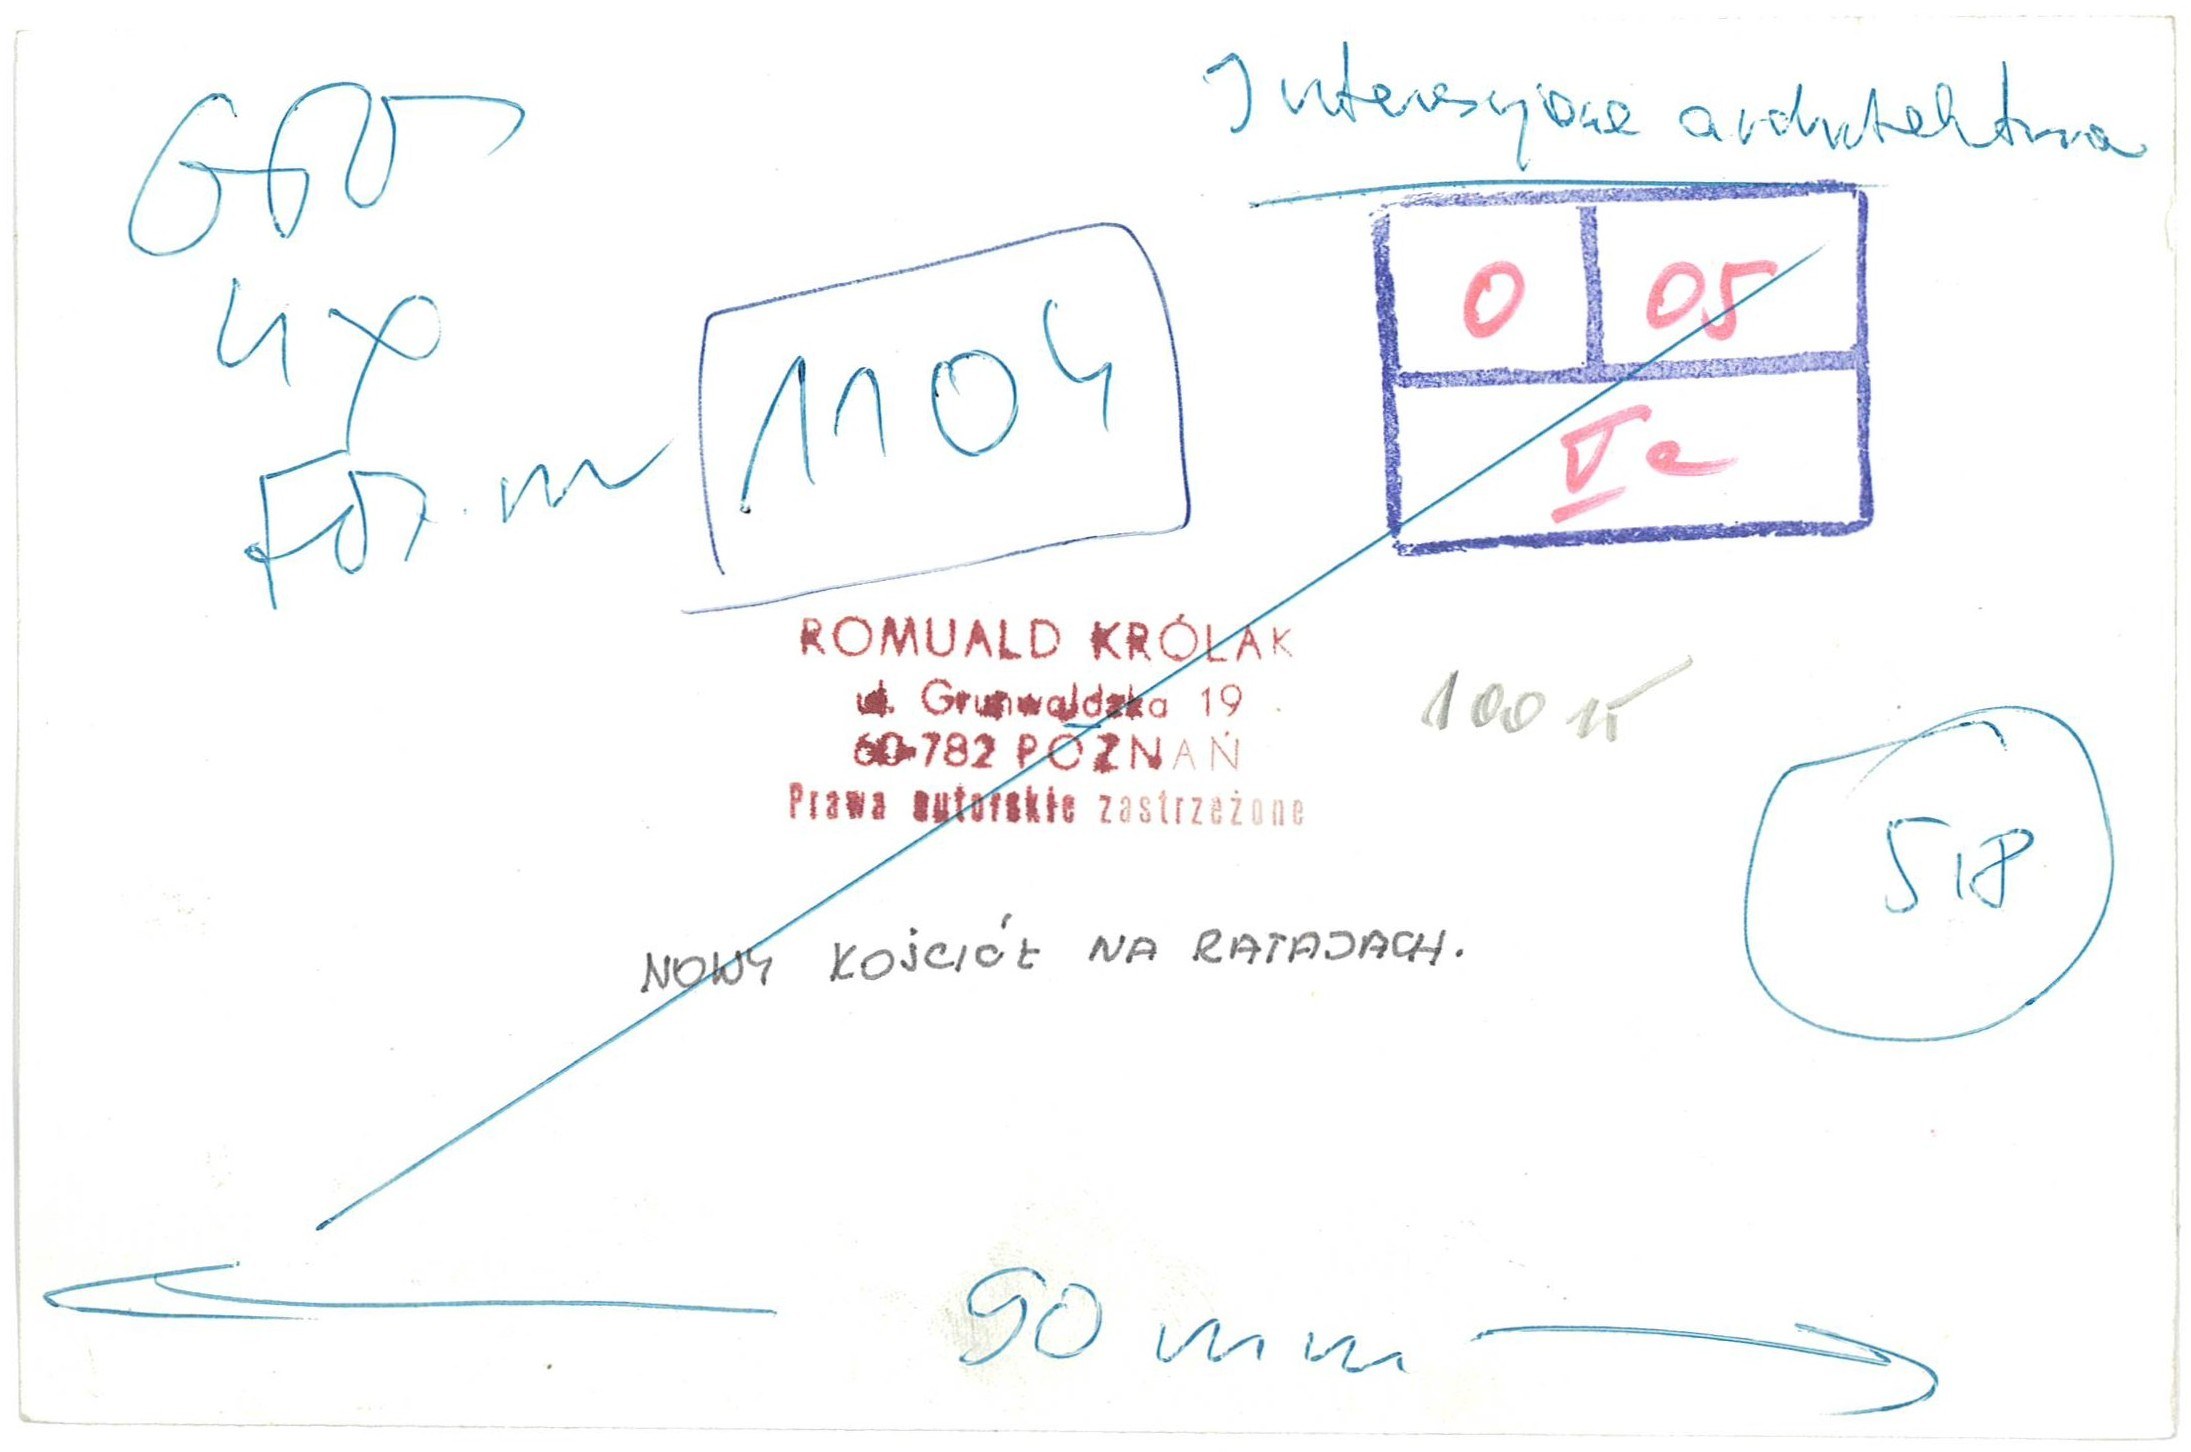 Interesująca architektura
4 x
1104
0 05
V a
ROMUALD KRÓLAK
ul. Grunwaldzka 19
60-782 POZNAŃ
Prawa autorskie zastrzeżone
100 zł
518
NOWY KOŚCIÓŁ NA RATAJACH.
90 mm